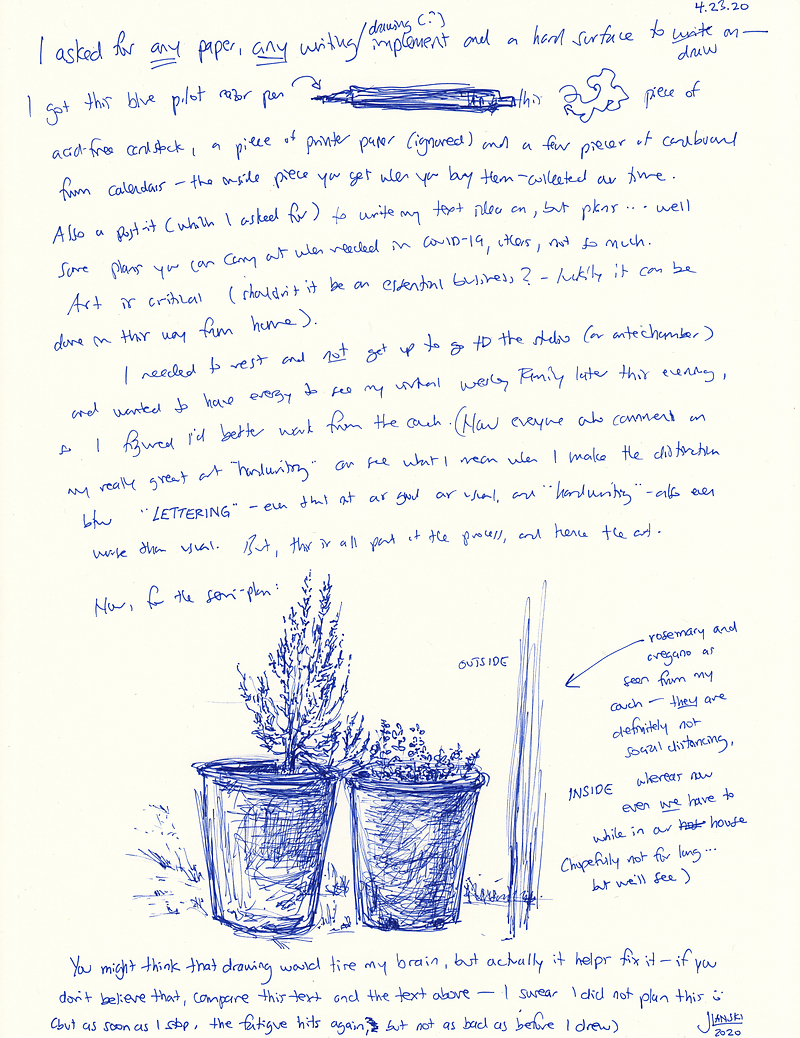 4.23.20
drawing (?)
I asked for any paper, any writing/implement and a hard surface to write on —
draw
I got this blue pilot razor pen this piece of
acid-free cardstock, a piece of printer paper (ignored) and a few pieces of cardboard
from calendars – the inside piece you get when you buy them – collected over time.
Also a post-it (which I asked for) to write my text idea on, but plans... well
some plans you can carry out when needed in COVID-19, others, not so much.
Art is critical (shouldn't it be an essential business? – luckily it can be
done in this way from home).
I needed to rest and not get up to go to the studio (or antechamber)
and wanted to have energy to see my virtual Wesley Family later this evening,
so I figured I'd better work from the couch. (Now everyone who comments on
my really great art "handwriting" can see what I mean when I make the distinction
btw "LETTERING" – even that not as good as usual, and "handwriting" – also even
worse than usual. But, this is all part of the process, and hence the art.
Now, for the semi-plan:
OUTSIDE
rosemary and
oregano as
seen from my
couch — they are
definitely not
social distancing,
INSIDE whereas now
even we have to
while in our house
(hopefully not for long...
but we'll see)
You might think that drawing would tire my brain, but actually it helps fix it – if you
don't believe that, compare this text and the text above — I swear I did not plan this :)
(but as soon as I stop, the fatigue hits again, but not as bad as before I drew)
JLANSKI
2020